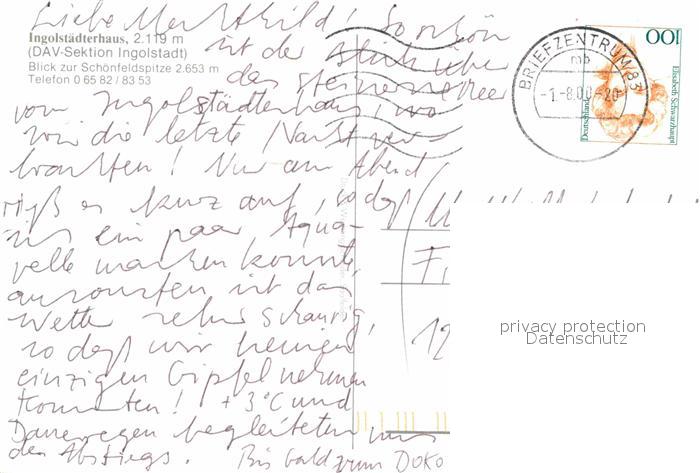 Ingolstädterhaus, 2.119 m
(DAV-Sektion Ingolstadt)
Blick zur Schönfeldspitze 2.653 m
Telefon 0 65 82 / 83 53
Liebe Mechthild! So schön
ist der Blick über
das steinerne Meer
vom Ingolstädterhaus, wo
wir die letzte Nacht ver-
brachten! Nur am Abend
riß es kurz auf, so daß
ich ein paar Aqua-
relle machen konnte,
ansonsten ist das
Wetter sehr schaurig,
so daß wir keinen
einzigen Gipfel nehmen
konnten! +3°C und
Dauerregen begleiteten uns
den Abstieg. Bis bald zum DOKO
BRIEFZENTRUM 83
mb
-1.-8.00-20
100
Deutschland
Elisabeth Schwarzhaupt
12
privacy protection
Datenschutz